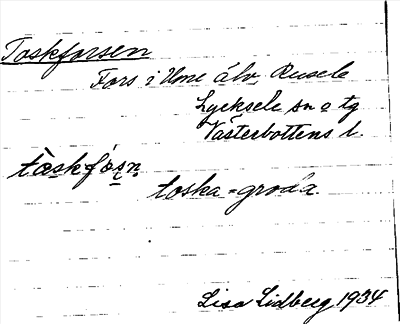 Toskforsen
Fors i Ume älv Rusele
Lycksele sn o tg
Västerbottens l.
tåskfòsn
toska = groda
Lisa Lidberg 1934